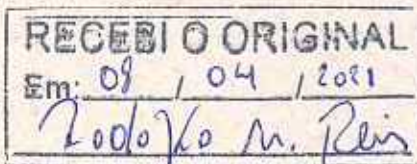 RECEBI O ORIGINAL
Em: 08 / 04 / 2021
Rodolfo M. Reis